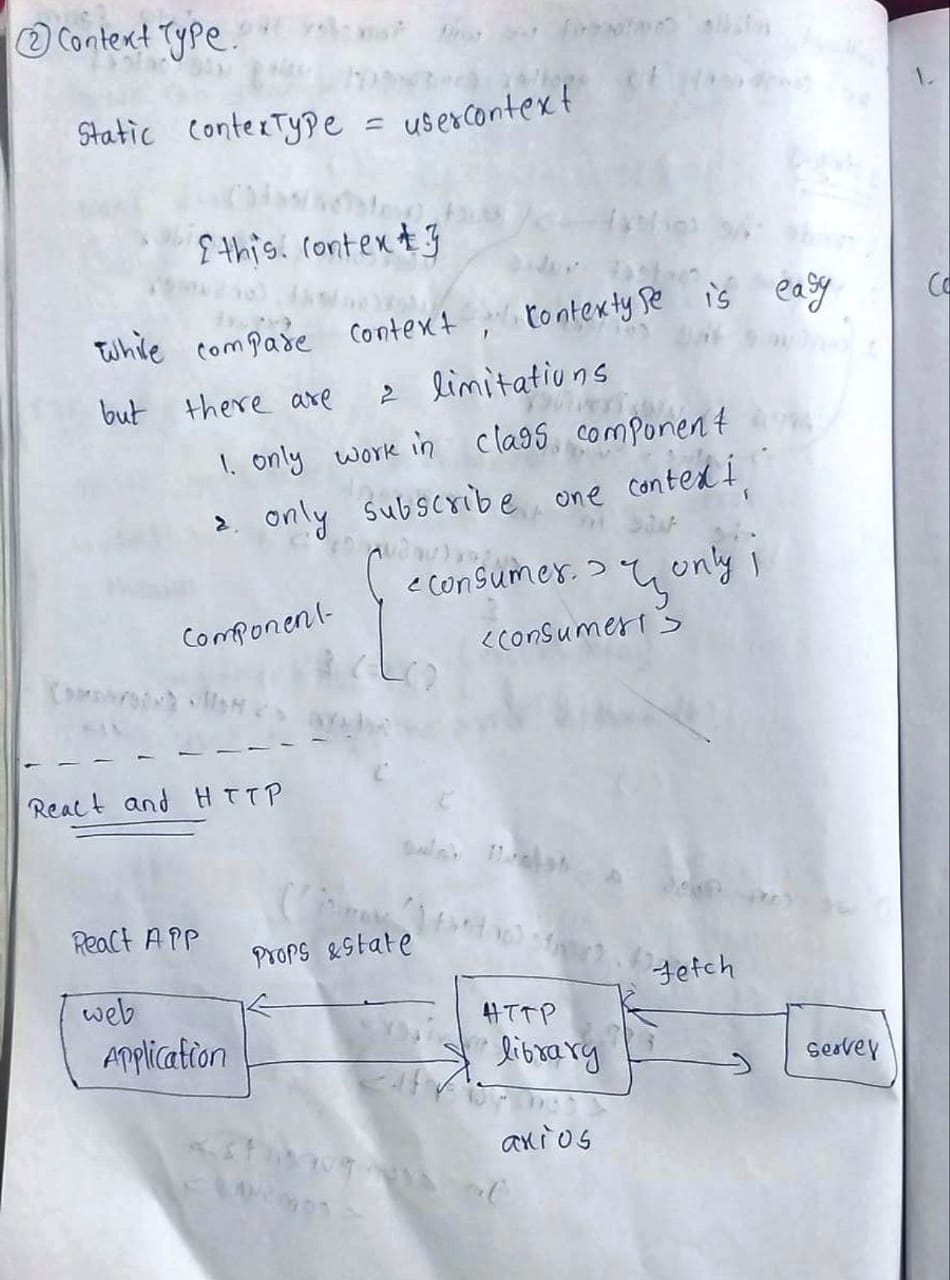 ② Context Type.
Static contexType = usercontext
{this.context}
While compare context, contextype is easy
but there are 2 limitations
1. only work in class component
2. only subscribe one context,
component
<consumer.> only
<consumer>
React and HTTP
React APP
Props & state
fetch
web
Application
HTTP
library
server
axios
1.